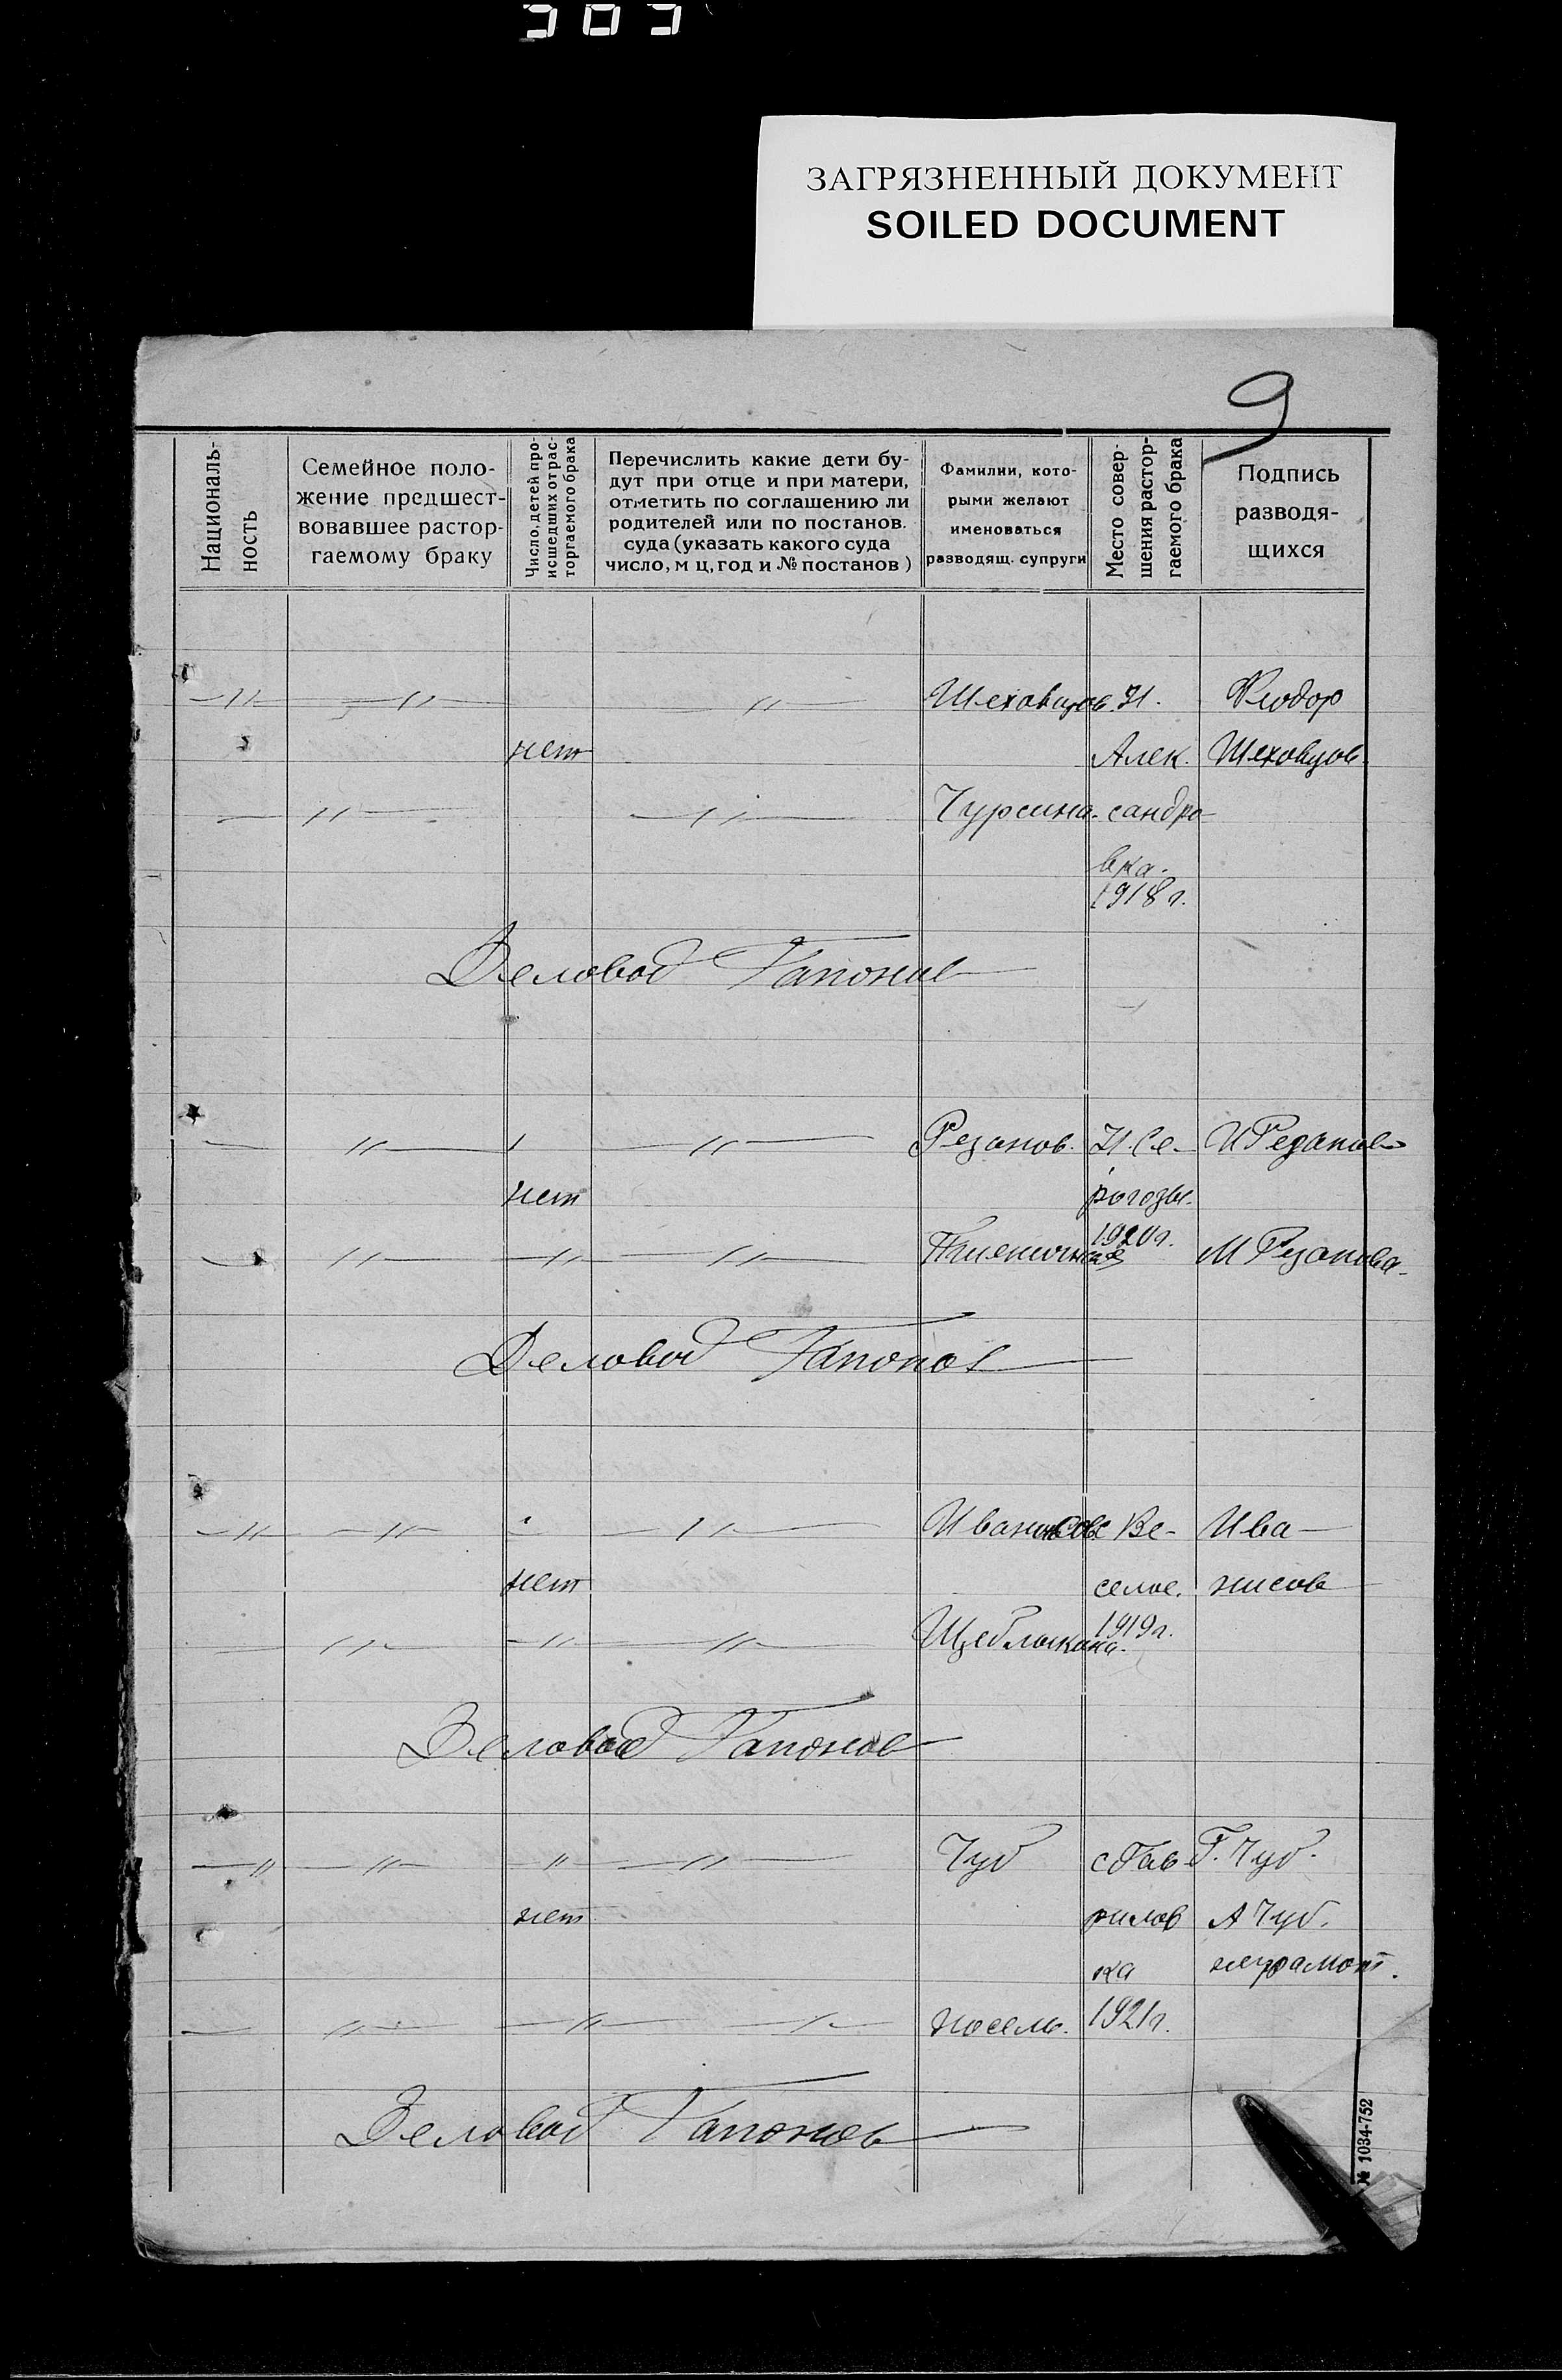 303
ЗАГРЯЗНЕННЫЙ ДОКУМЕНТ
SOILED DOCUMENT
9
Националь-
ность
Семейное поло-
жение предшест-
вовавшее растор-
гаемому браку
Число, детей про-
исшедших от рас-
торгаемого брака
Перечислить какие дети бу-
дут при отце и при матери,
отметить по соглашению ли
родителей или по постанов.
суда (указать какого суда
число, м ц, год и № постанов)
Фамилии, кото-
рыми желают
именоваться
разводящ. супруги
Место совер-
шения растор-
гаемого брака
Подпись
разводя-
щихся
—〃— —〃— —〃— Шеховцов. Н. Феодор
нет Алек. Шеховцов
—〃— —〃— Чурсина. сандро-
вка.
1918 г.
Деловод Гапонов
— 〃— —〃— Резанов. Н. Се- И Резанов
нет рогозы.
1920 г.
— 〃— —〃— —〃— М Резанова.
Деловод Гапонов
—〃— —〃— —〃— с Ве- Ива-
нет селое. нисов
1919 г.
— 〃— —〃— —〃— Щеблыкина.
Деловод Гапонов
—〃— —〃— 〃 —〃— Чуб с Гав Г. Чуб.
нет рилов А Чуб.
ка неграмот.
— 〃— —〃— —〃— Носель. 1921 г.
Деловод Гапонов
№ 1034-752